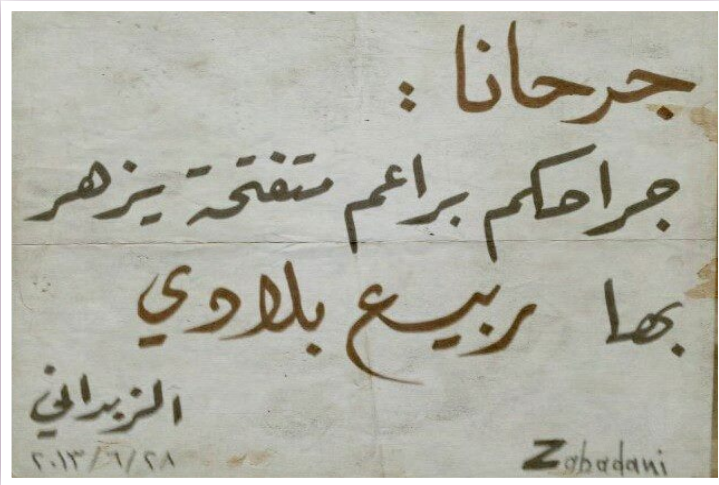 جرحانا :
جراحكم براعم متفتحة يزهر
بها ربيع بلادي
الزبداني
٢٠١٣/٦/٢٨
Zabadani